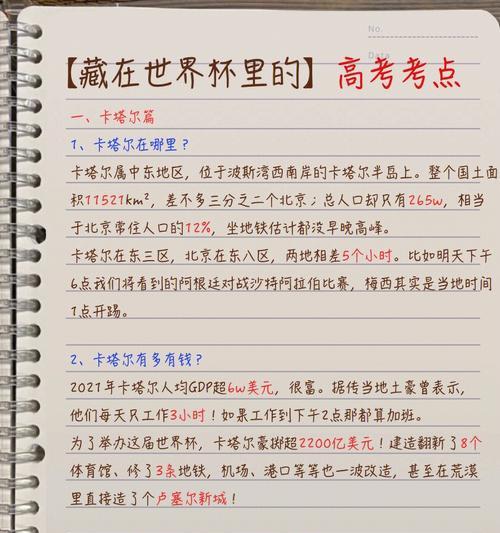 No.
Data
【藏在世界杯里的】高考考点
一、卡塔尔篇
1、卡塔尔在哪里？
卡塔尔属中东地区，位于波斯湾西南岸的卡塔尔半岛上。整个国土面
积11521km²，差不多三分之二个北京；总人口却只有265w，相当
于北京常住人口的12%，坐地铁估计都没早晚高峰。
卡塔尔在东三区，北京在东八区，两地相差5个小时。比如明天下午
6点我们将看到的阿根廷对战沙特阿拉伯比赛，梅西其实是当地时间
1点开踢。
2、卡塔尔有多有钱？
2021年卡塔尔人均GDP超6w美元，很富。据传当地土豪曾表示，
他们每天只工作3小时！如果工作到下午2点那都算加班。
为了举办这届世界杯，卡塔尔豪掷超2200亿美元！建造翻新了8个
体育馆、修了3条地铁，机场、港口等等也一波改造，甚至在荒漠
里直接造了个卢塞尔新城！